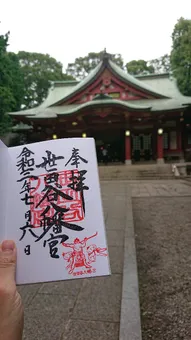 奉拝
世田谷八幡宮
令和二年七月八日